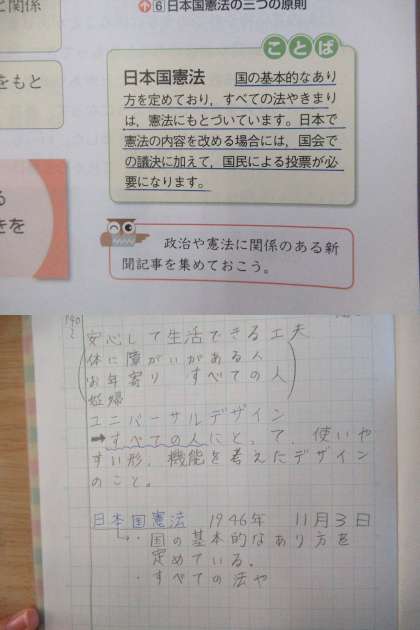 と関係
⑥日本国憲法の三つの原則
をもと
ことば
日本国憲法 国の基本的なあり
方を定めており，すべての法やきまり
は，憲法にもとづいています。日本で
憲法の内容を改める場合には，国会で
の議決に加えて，国民による投票が必
要になります。
る
きを
政治や憲法に関係のある新
聞記事を集めておこう。
安心して生活できる工夫
体に障がいがある人
お年寄り すべての人
妊婦
ユニバーサルデザイン
➡すべての人にとって、使いや
すい形、機能を考えたデザイン
のこと。
日本国憲法 1946年 11月3日
・国の基本的なあり方を
定めている。
・すべての法や